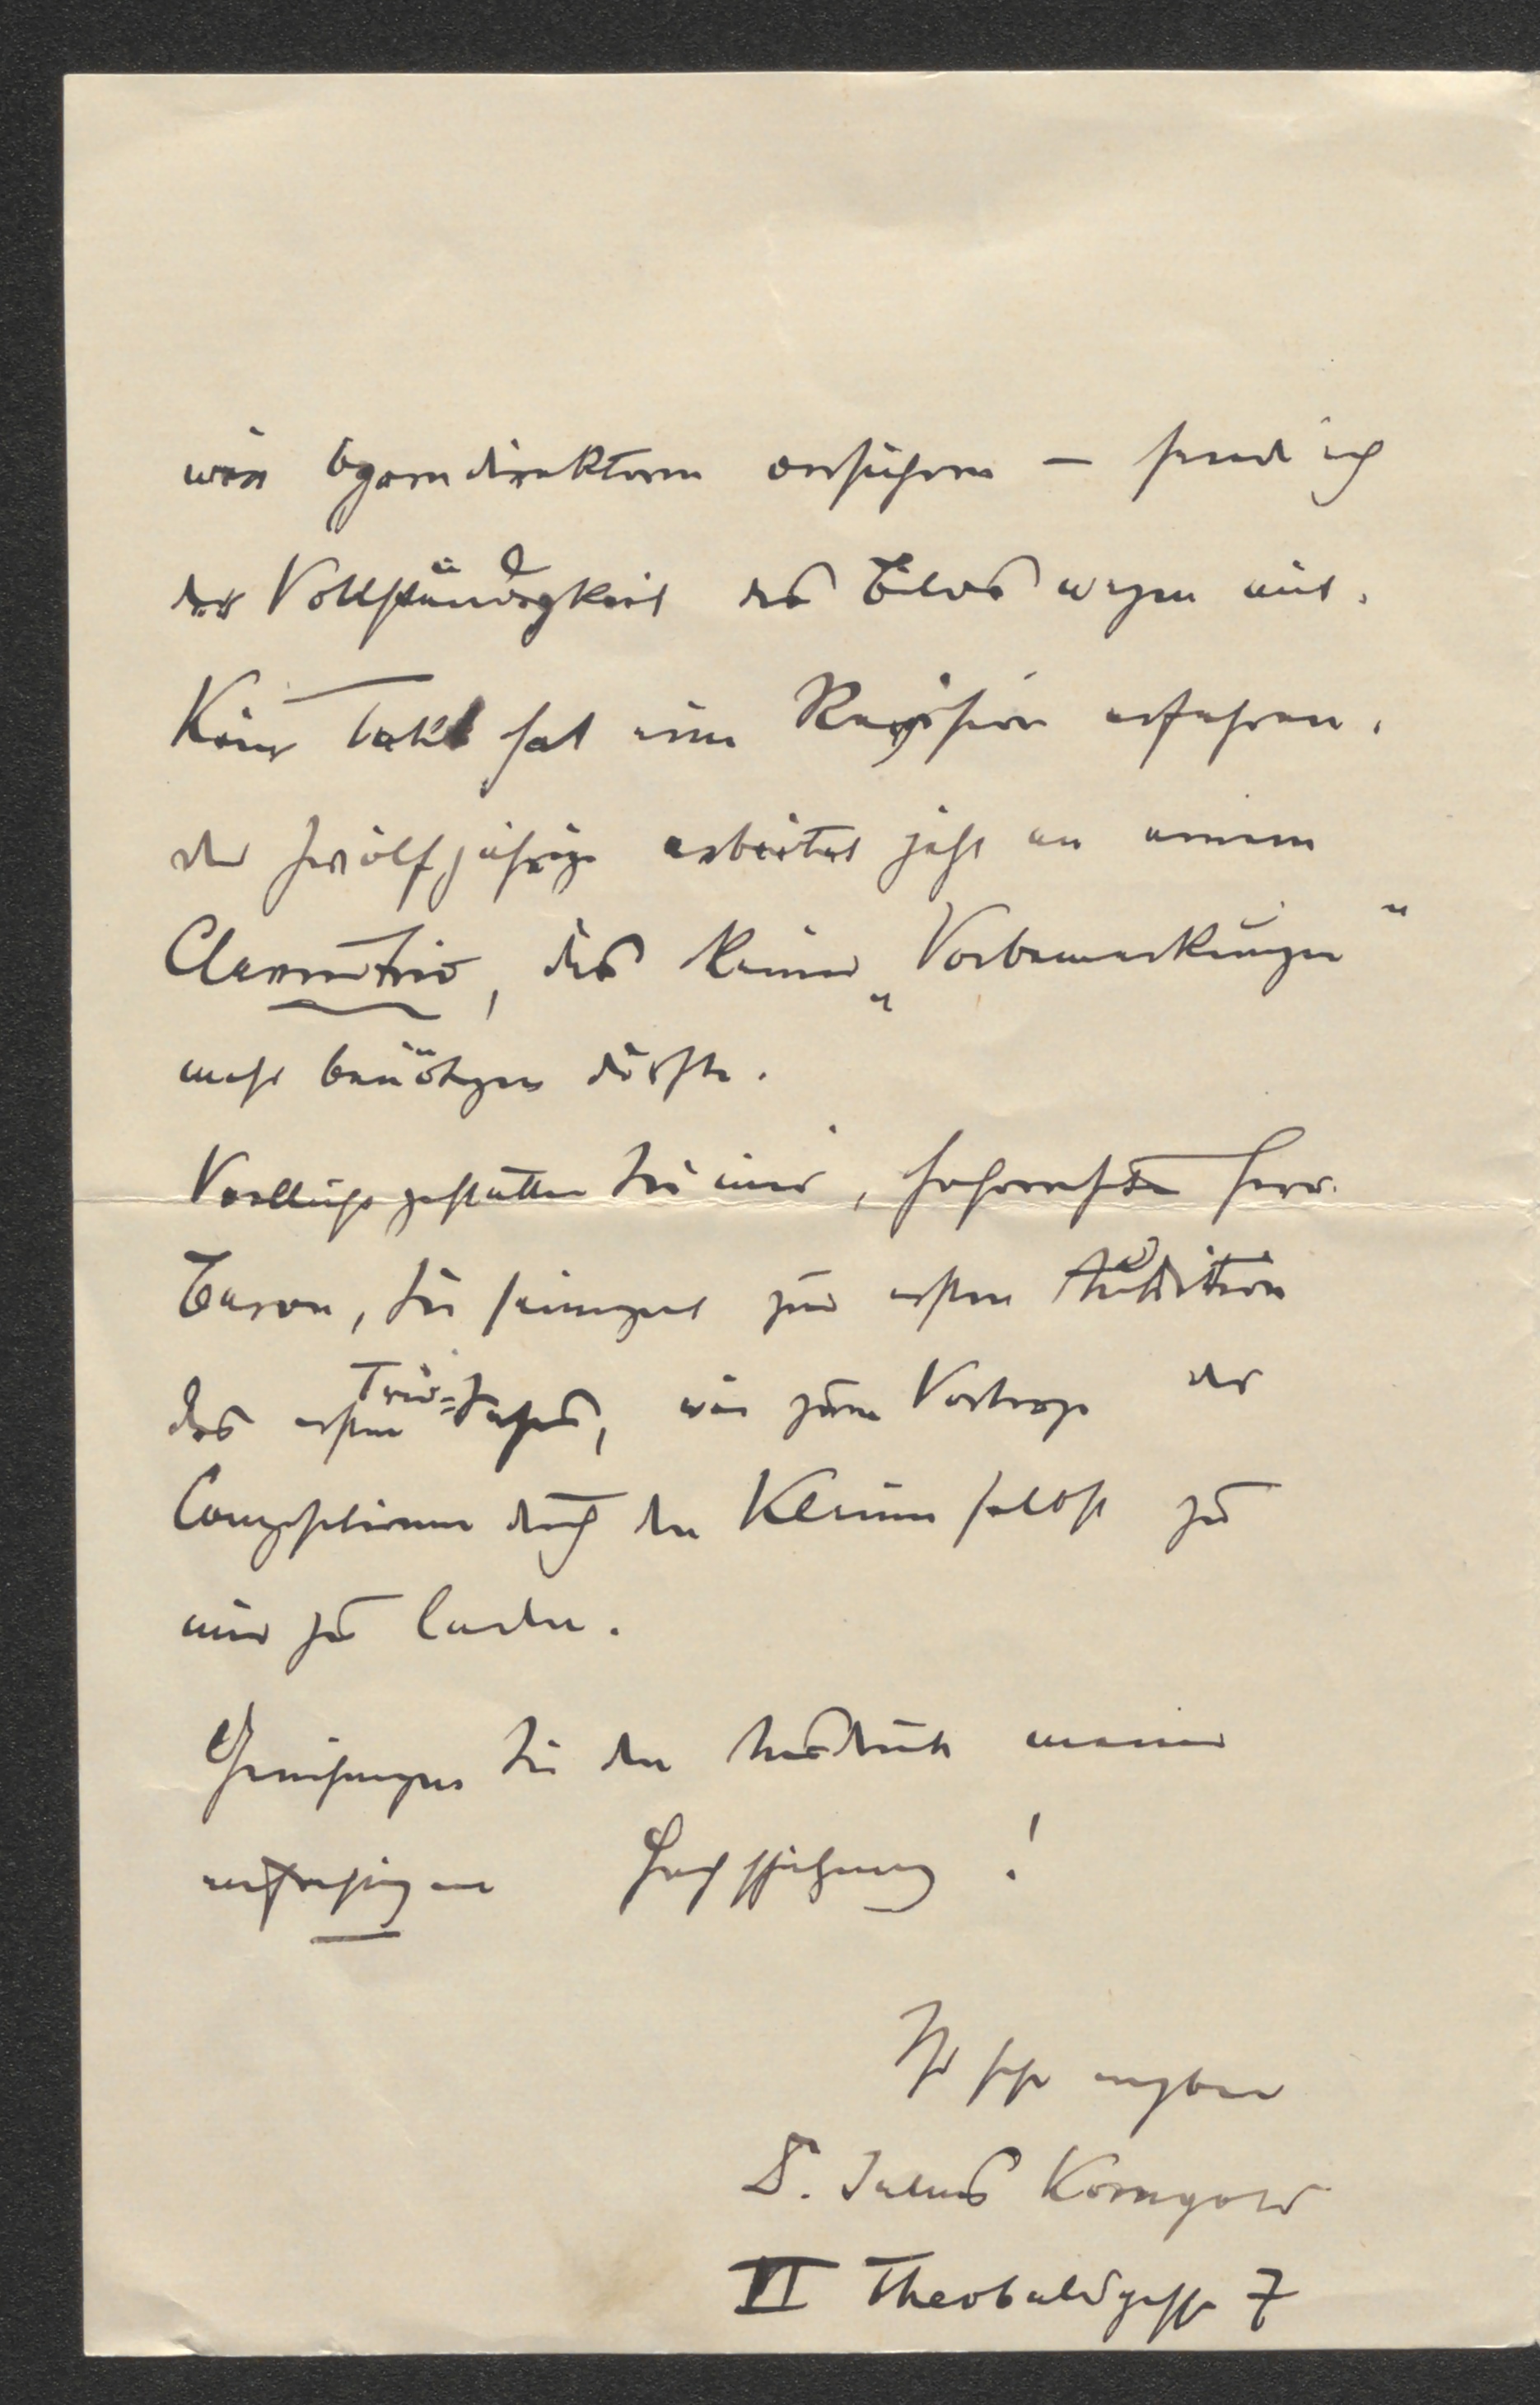 wir Operndirektoren ersuchen – send ich
der Vollständigkeit des Bildes wegen mit.
Kein Takt hat eine Revision erfahren.
der zwölfjährige arbeitet jetzt an einem
Claviertrio, das keiner „Vorbemerkungen“
mehr benötigen dürfte.
Vielleicht gestatten Sie mir, hochverehrter Herr
Baron, Sie seinerzeit zur ersten Audition
des ersten Trio-Satzes, wie zum Vortrage der
Compositionen durch den Kleinen selbst zu
mir zu laden.
Genehmigen Sie den Ausdruck meiner
aufrichtigen Hochschätzung!
Ihr sehr ergebener
D. Julius Korngold
VI Theobaldgasse 7